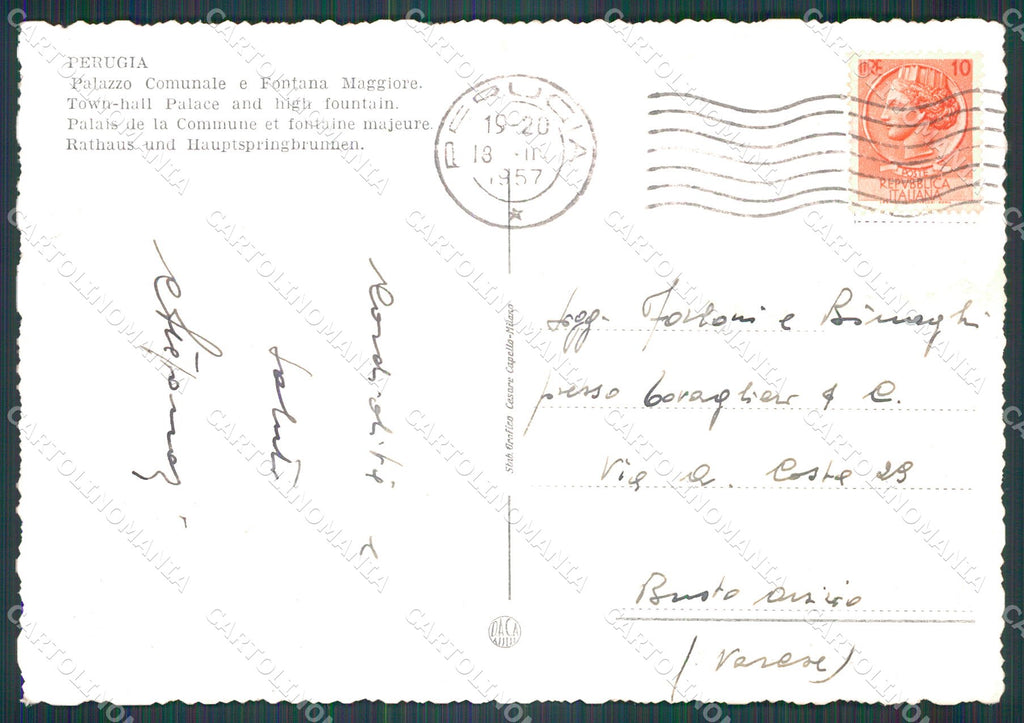 PERUGIA
Palazzo Comunale e Fontana Maggiore.
Town-hall Palace and high fountain.
Palais de la Commune et fontaine majeure.
Rathaus und Hauptspringbrunnen.
PERUGIA
19-20
1957
LIRE 10
POSTE
REPVBBLICA
ITALIANA
Cordialità
saluti
Stab. Grafico Cesare Capello-Milano
DACA
Sigg. Forloni e Bimaghi
presso & C.
Via A. Costa 29
Busto Arsizio
(Varese)
CARTOLINOMANIA